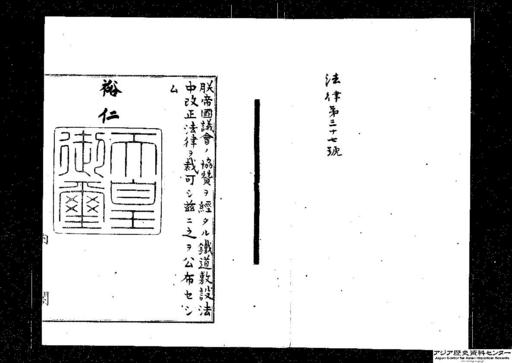 法律第三十七號
朕帝國議會ノ協贊ヲ經タル鐵道敷設法
中改正法律ヲ裁可シ茲ニ之ヲ公布セシ
ム
裕仁
天皇
御璽
内閣
アジア歴史資料センター
Japan Center for Asian Historical Records